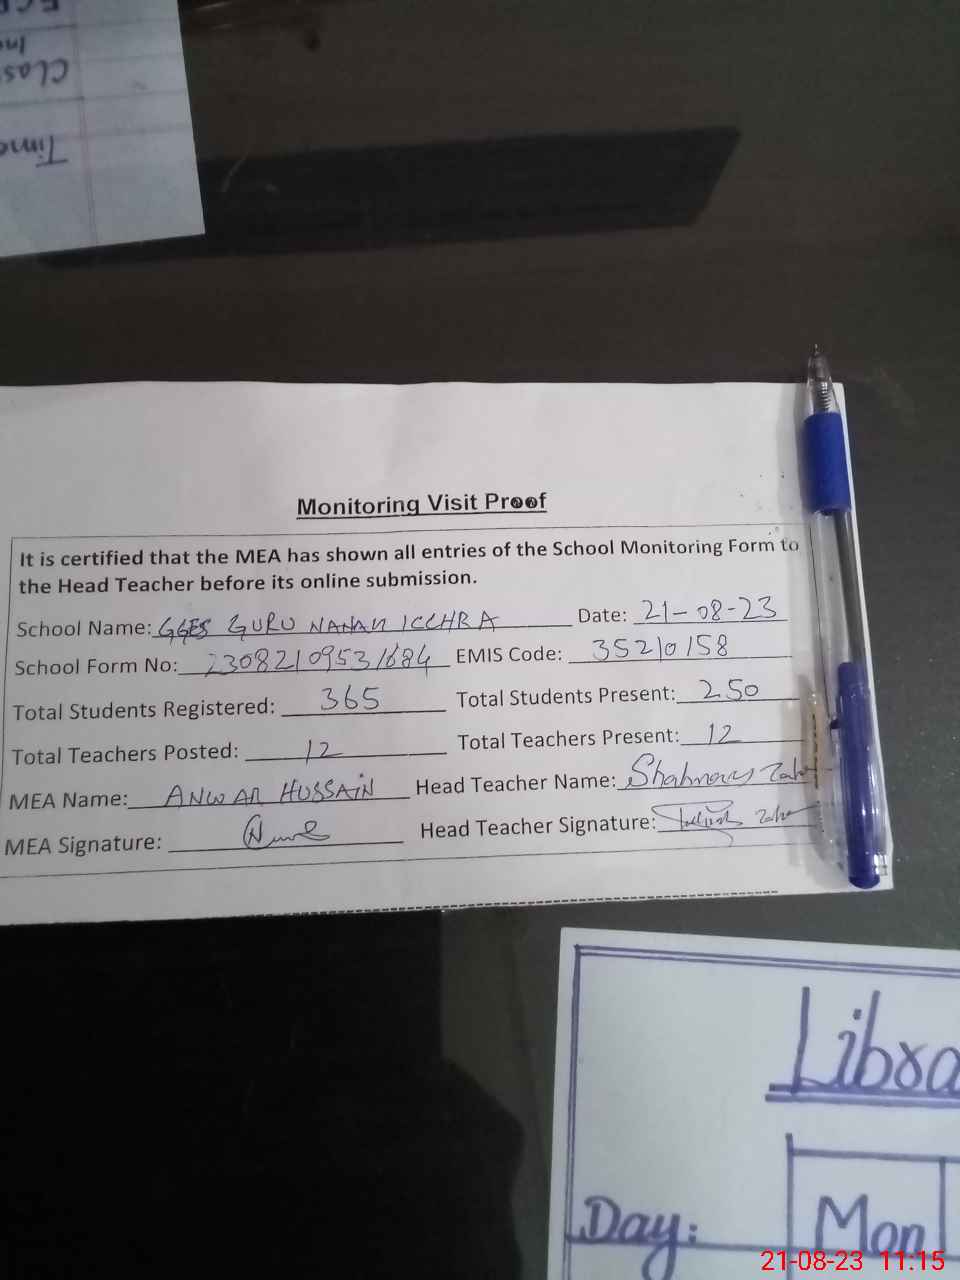 Time
Clas
In
Monitoring Visit Proof
It is certified that the MEA has shown all entries of the School Monitoring Form to
the Head Teacher before its online submission.
School Name: GGES GURU NANAK ICCHRA Date: 21-08-23
School Form No: 23082109531684 EMIS Code: 35210158
Total Students Registered: 365 Total Students Present: 250
Total Teachers Posted: 12 Total Teachers Present: 12
MEA Name: ANWAR HUSSAIN Head Teacher Name:
MEA Signature: Head Teacher Signature:
Libra
Day: Mon
21-08-23 11:15